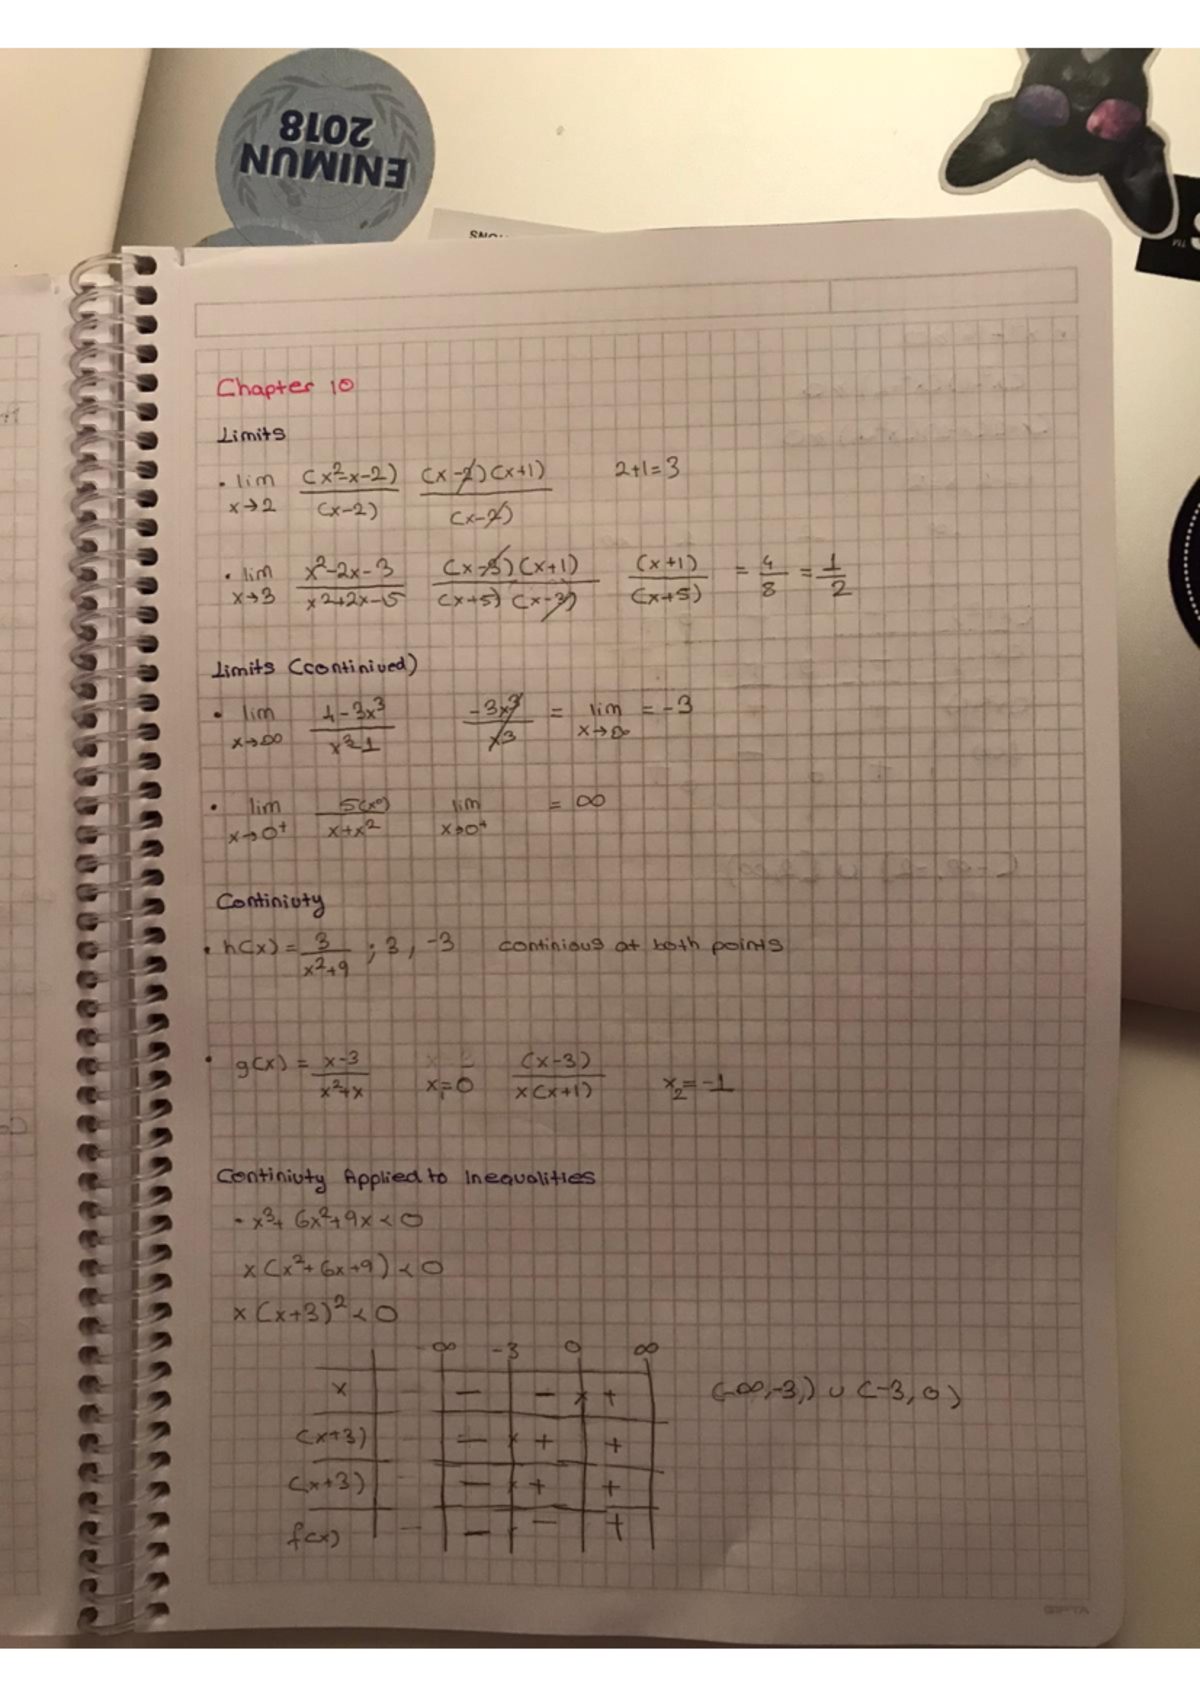 ENIMUN
2018
Chapter 10
Limits
• lim x→2 (x²-x-2)/(x-2) (x-2)(x+1)/(x-2) 2+1=3
• lim x→3 x²-2x-3/x²+2x-15 (x-3)(x+1)/(x+5)(x-3) (x+1)/(x+5) = 4/8 = 1/2
Limits (continived)
• lim x→∞ 4-3x³/x³-1 -3x³/x³ = lim x→∞ = -3
• lim x→0⁺ lim x→0⁺ = ∞
Continivty
• h(x) = 3/x²+9 ; 3, -3 continious at both points
• g(x) = x-3/x²+x x₁=0 (x-3)/x(x+1) x₂=-1
Continivty Applied to Inequalities
- x³+6x²+9x<0
x(x²+6x+9)<0
x(x+3)²<0
-∞ -3 0 ∞
x - - x + (-∞,-3,) ∪ (-3,0)
(x+3) - x + +
(x+3) - x + +
f(x) - - +